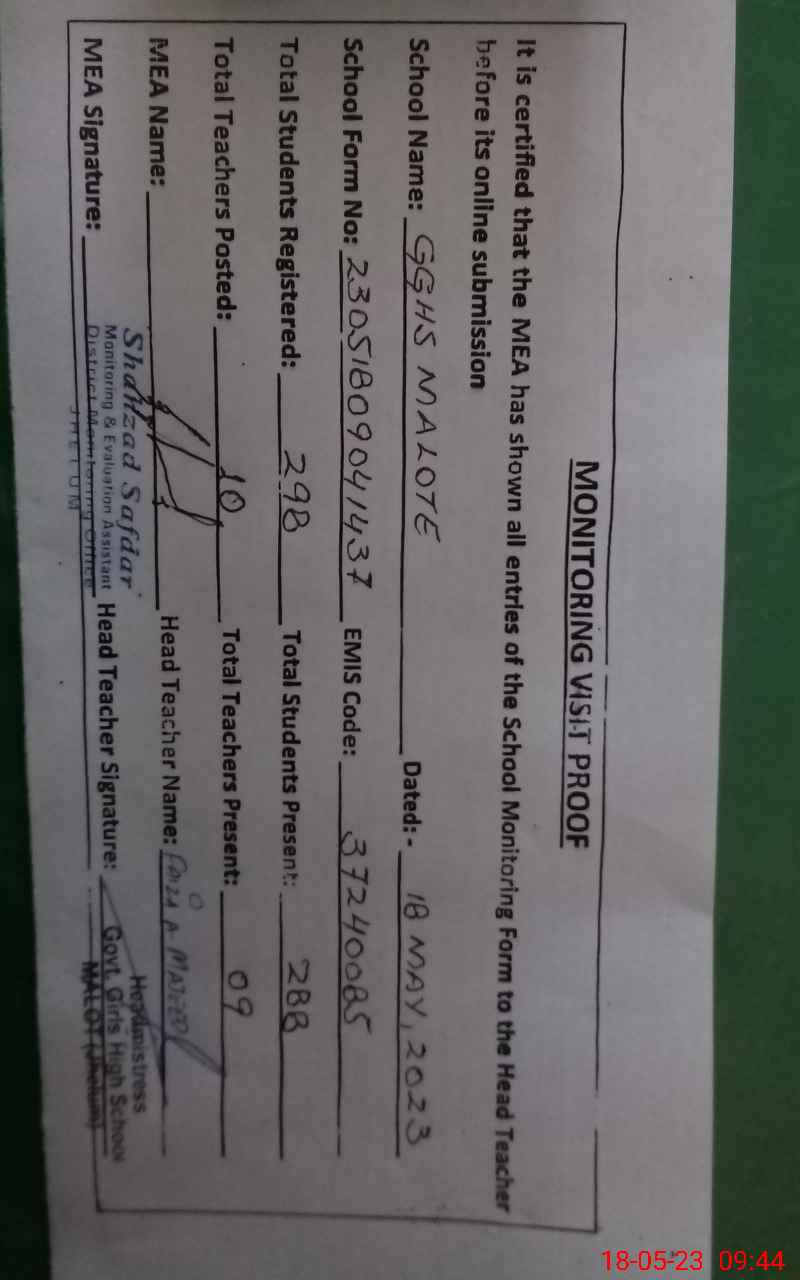 MONITORING VISIT PROOF
It is certified that the MEA has shown all entries of the School Monitoring Form to the Head Teacher
before its online submission
School Name: GGHS MALOTE Dated:- 18 MAY, 2023
School Form No: 23051809041437 EMIS Code: 37240085
Total Students Registered: 298 Total Students Present: 288
Total Teachers Posted: 10 Total Teachers Present: 09
MEA Name: Head Teacher Name:
Shahzad Safdar
Monitoring & Evaluation Assistant
District Monitoring Office
JHELUM
MEA Signature: Head Teacher Signature:
Headmistress
Govt. Girls High School
MALOT (Jhelum)
18-05-23 09:44